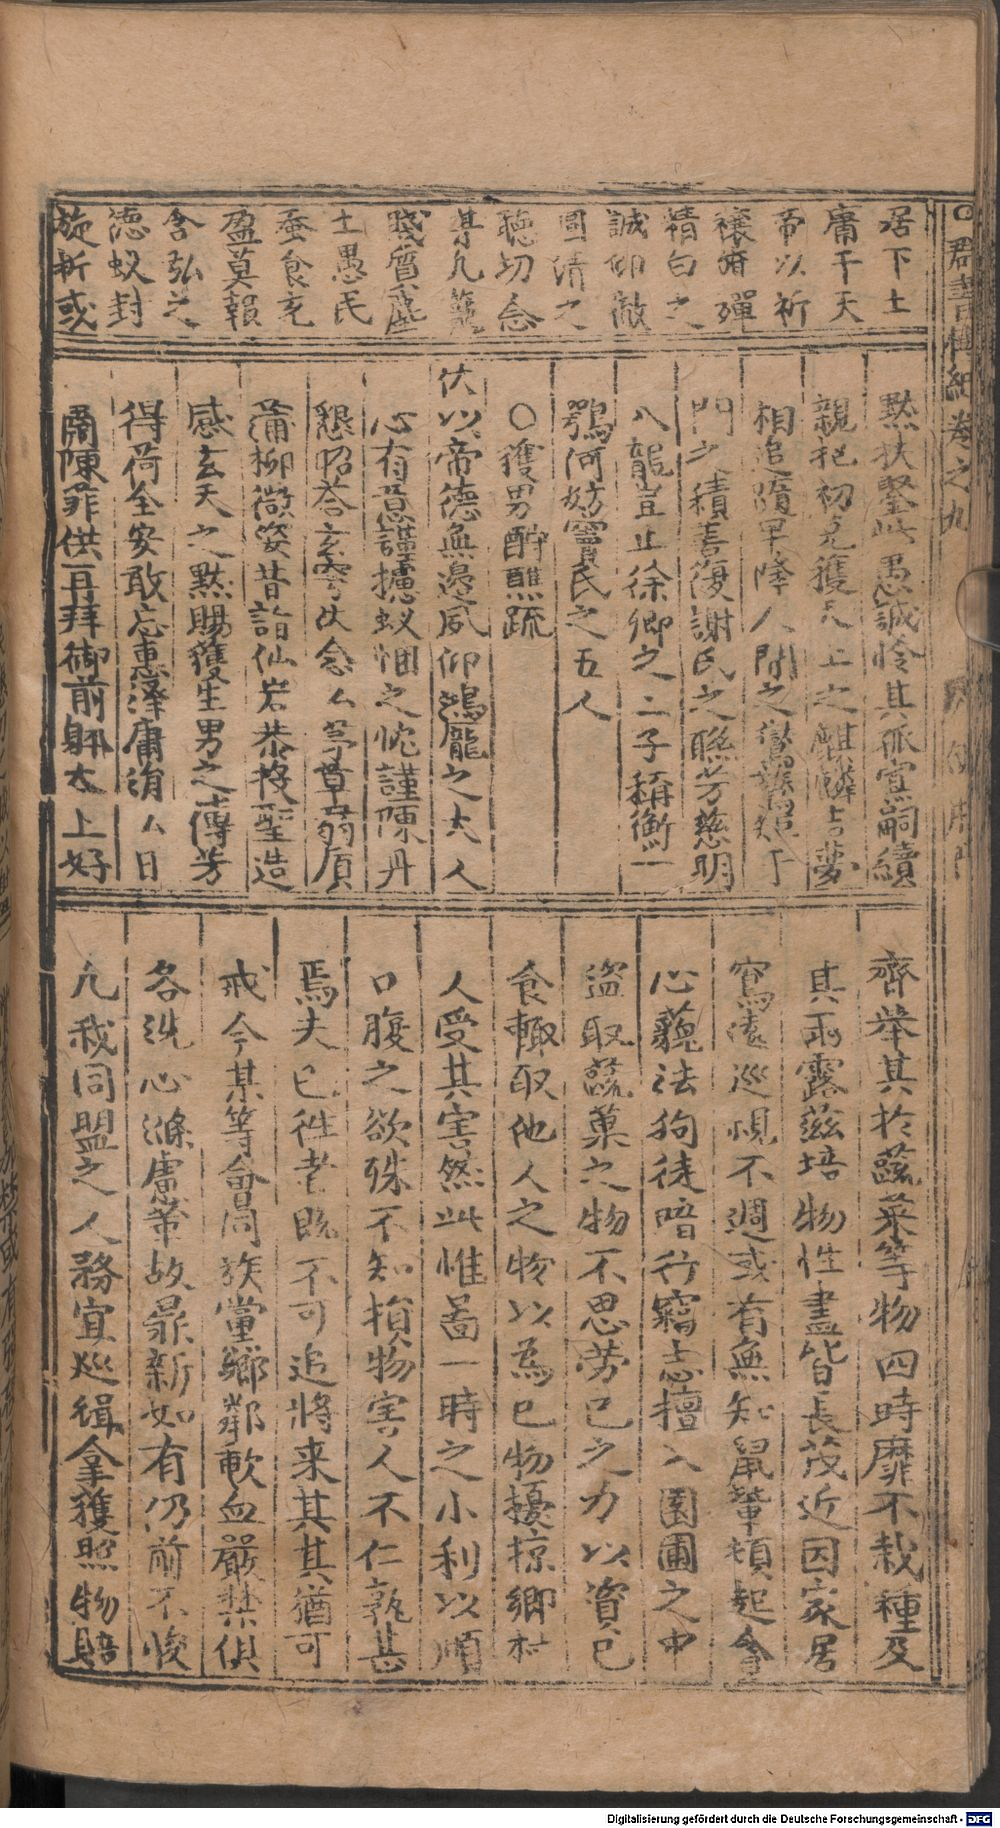 居下土
庸干天
帝以祈
禳宵殫
精白之
誠仰徹
圊清之
聽切念
賤質塵
土愚民
蚕食充
盈莫報
含弘之
德蚁封
旋折或
黙扶鑒此愚誠怜其孤宜嗣續
親抱初克獲天上之麒麟吉夢
相追隨早降人間之
門之積善復謝氏之聮芳慈明
八龍豈止徐卿之二子稱衡一
鶚何妨竇氏之五人
○獲男酧醮疏
伏以帝德無邉夙仰鴻龐之大人
心有意謹攄蚁悃之忱謹陳丹
懇昭荅玄穹伏念厶草草弱质
蒲柳微姿昔詣仙岩恭投聖造
感玄天之黙賜獲生男之傳芳
得荷全安敢忘惠澤庸涓厶日
陳菲供再拜御前躬太上好
齊举其於蔬菜等物四時靡不栽種及
其雨露滋培物性盡皆長茂近因家居
寫遠巡視不週或有無知鼠輩頓起貪
心藐法狗徒暗行竊志擅入園圃之中
盜取蔬菓之物不思劳己之力以資己
食輙取他人之物以為己物擾掠鄉村
人受其害然此惟啚一時之小利以順
口腹之欲殊不知損物害人不仁孰甚
焉夫已徃者既不可追將来其其猶可
戒今某等會同族黨鄉鄰歃血嚴禁俱
各洗心滌慮革故鼎新如有仍前不悛
凢我同盟之人務宜巡緝拿獲照物賠
○群書 卷之九
Digitalisierung gefördert durch die Deutsche Forschungsgemeinschaft - DFG